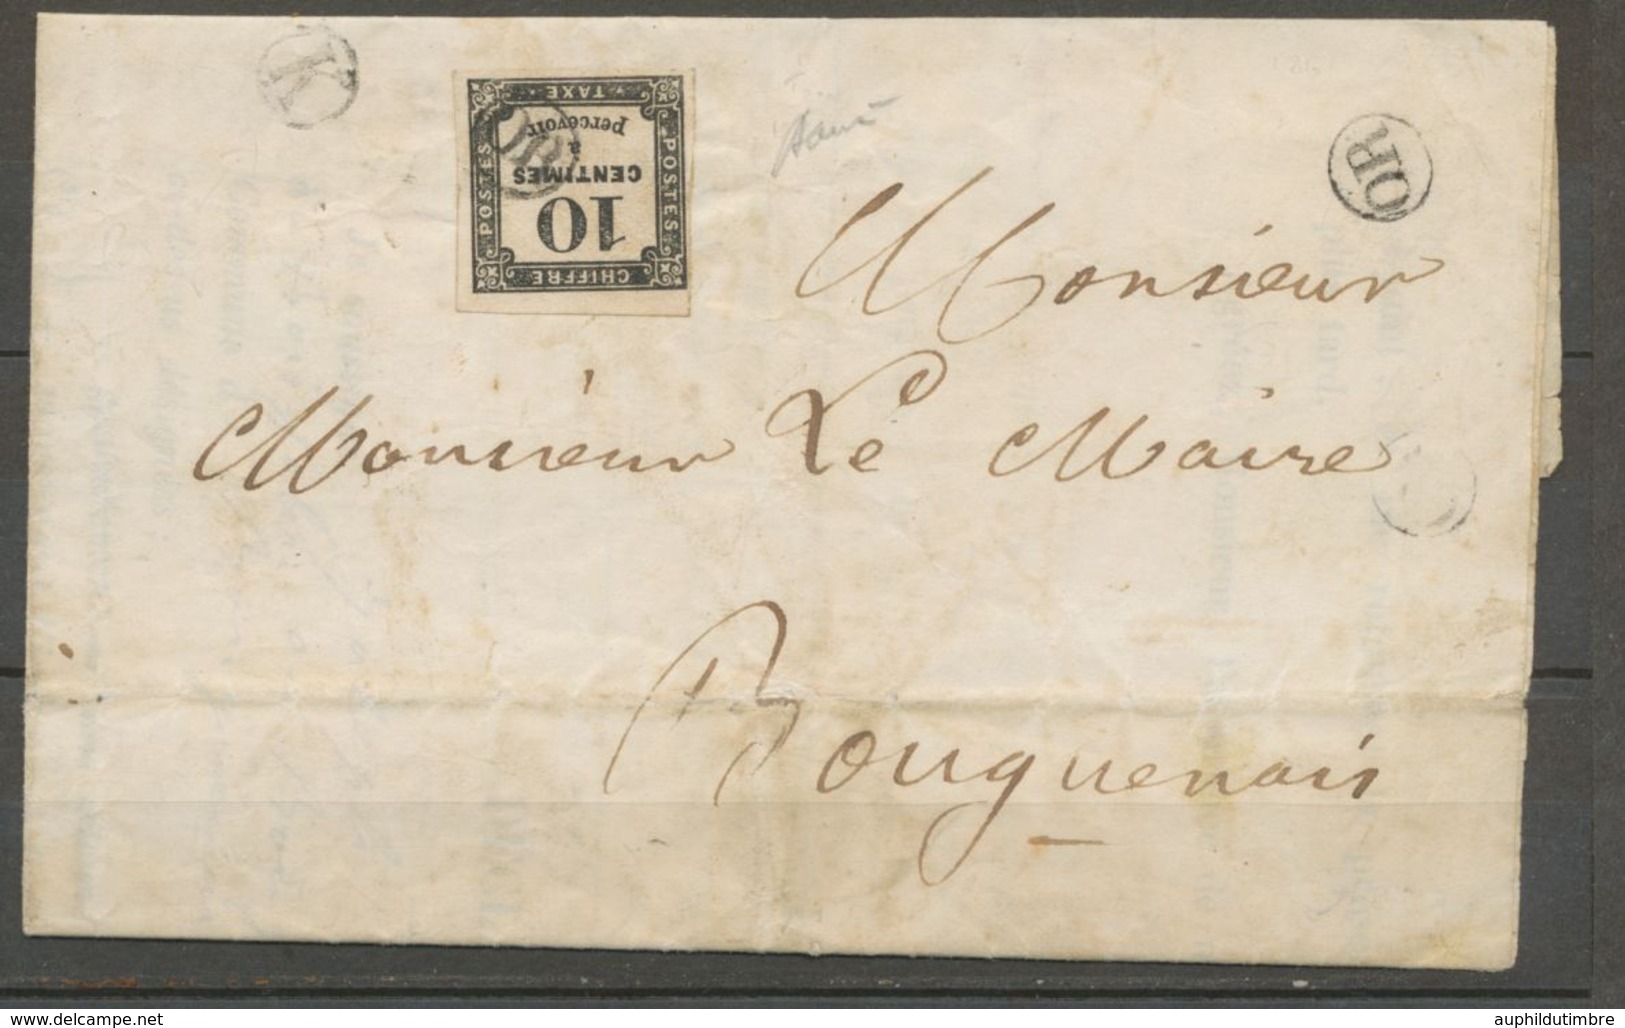 K
CHIFFRE
10
CENTIMES
à
percevoir
TAXE
POSTES
POSTES
OR
OR
Monsieur
Monsieur Le Maire
Bouguenais
www.delcampe.net
auphildutimbre